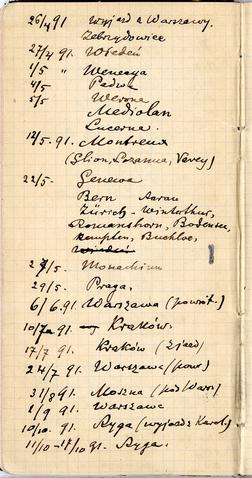 26/4 91 wyjazd z Warszawy.
Zebrzydowice
27/4 91. Wiedeń
1/5 " Wenecya
4/5 Padwa
5/5 Werona
Medyolan
Lucerna.
12/5. 91. Montreux
(Glion, Lozanna, Vevey)
22/5. Genewa
Bern Aarau
Zürich - Winterthur,
Romanshorn, Bodensee
Kempten, Buchloe,
27/5. Monachium
29/5. Praga,
6/6.91. Warszawa (powrót.)
10/7 91. Kraków.
17/7 91. Kraków (Zjazd)
24/7 91. Warszawa (pow)
31/8 91. Moszna (pod Warsz)
1/9 91. Warszawa
10/10. 91. Ryga (wyjazd z Karol.)
11/10 - 17/10 91. Ryga.